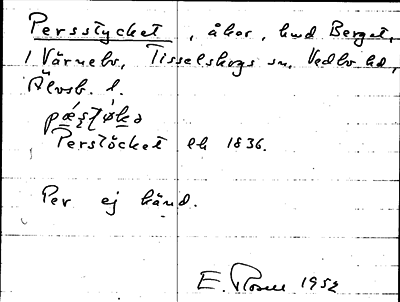 Persstycket, åker, hmd Berget,
1 Värnebo, Tisselskogs sn, Vedbo hd,
Älvsb. l.
Perstöcket lh 1836.
Per ej känd.
E. Rosell 1952